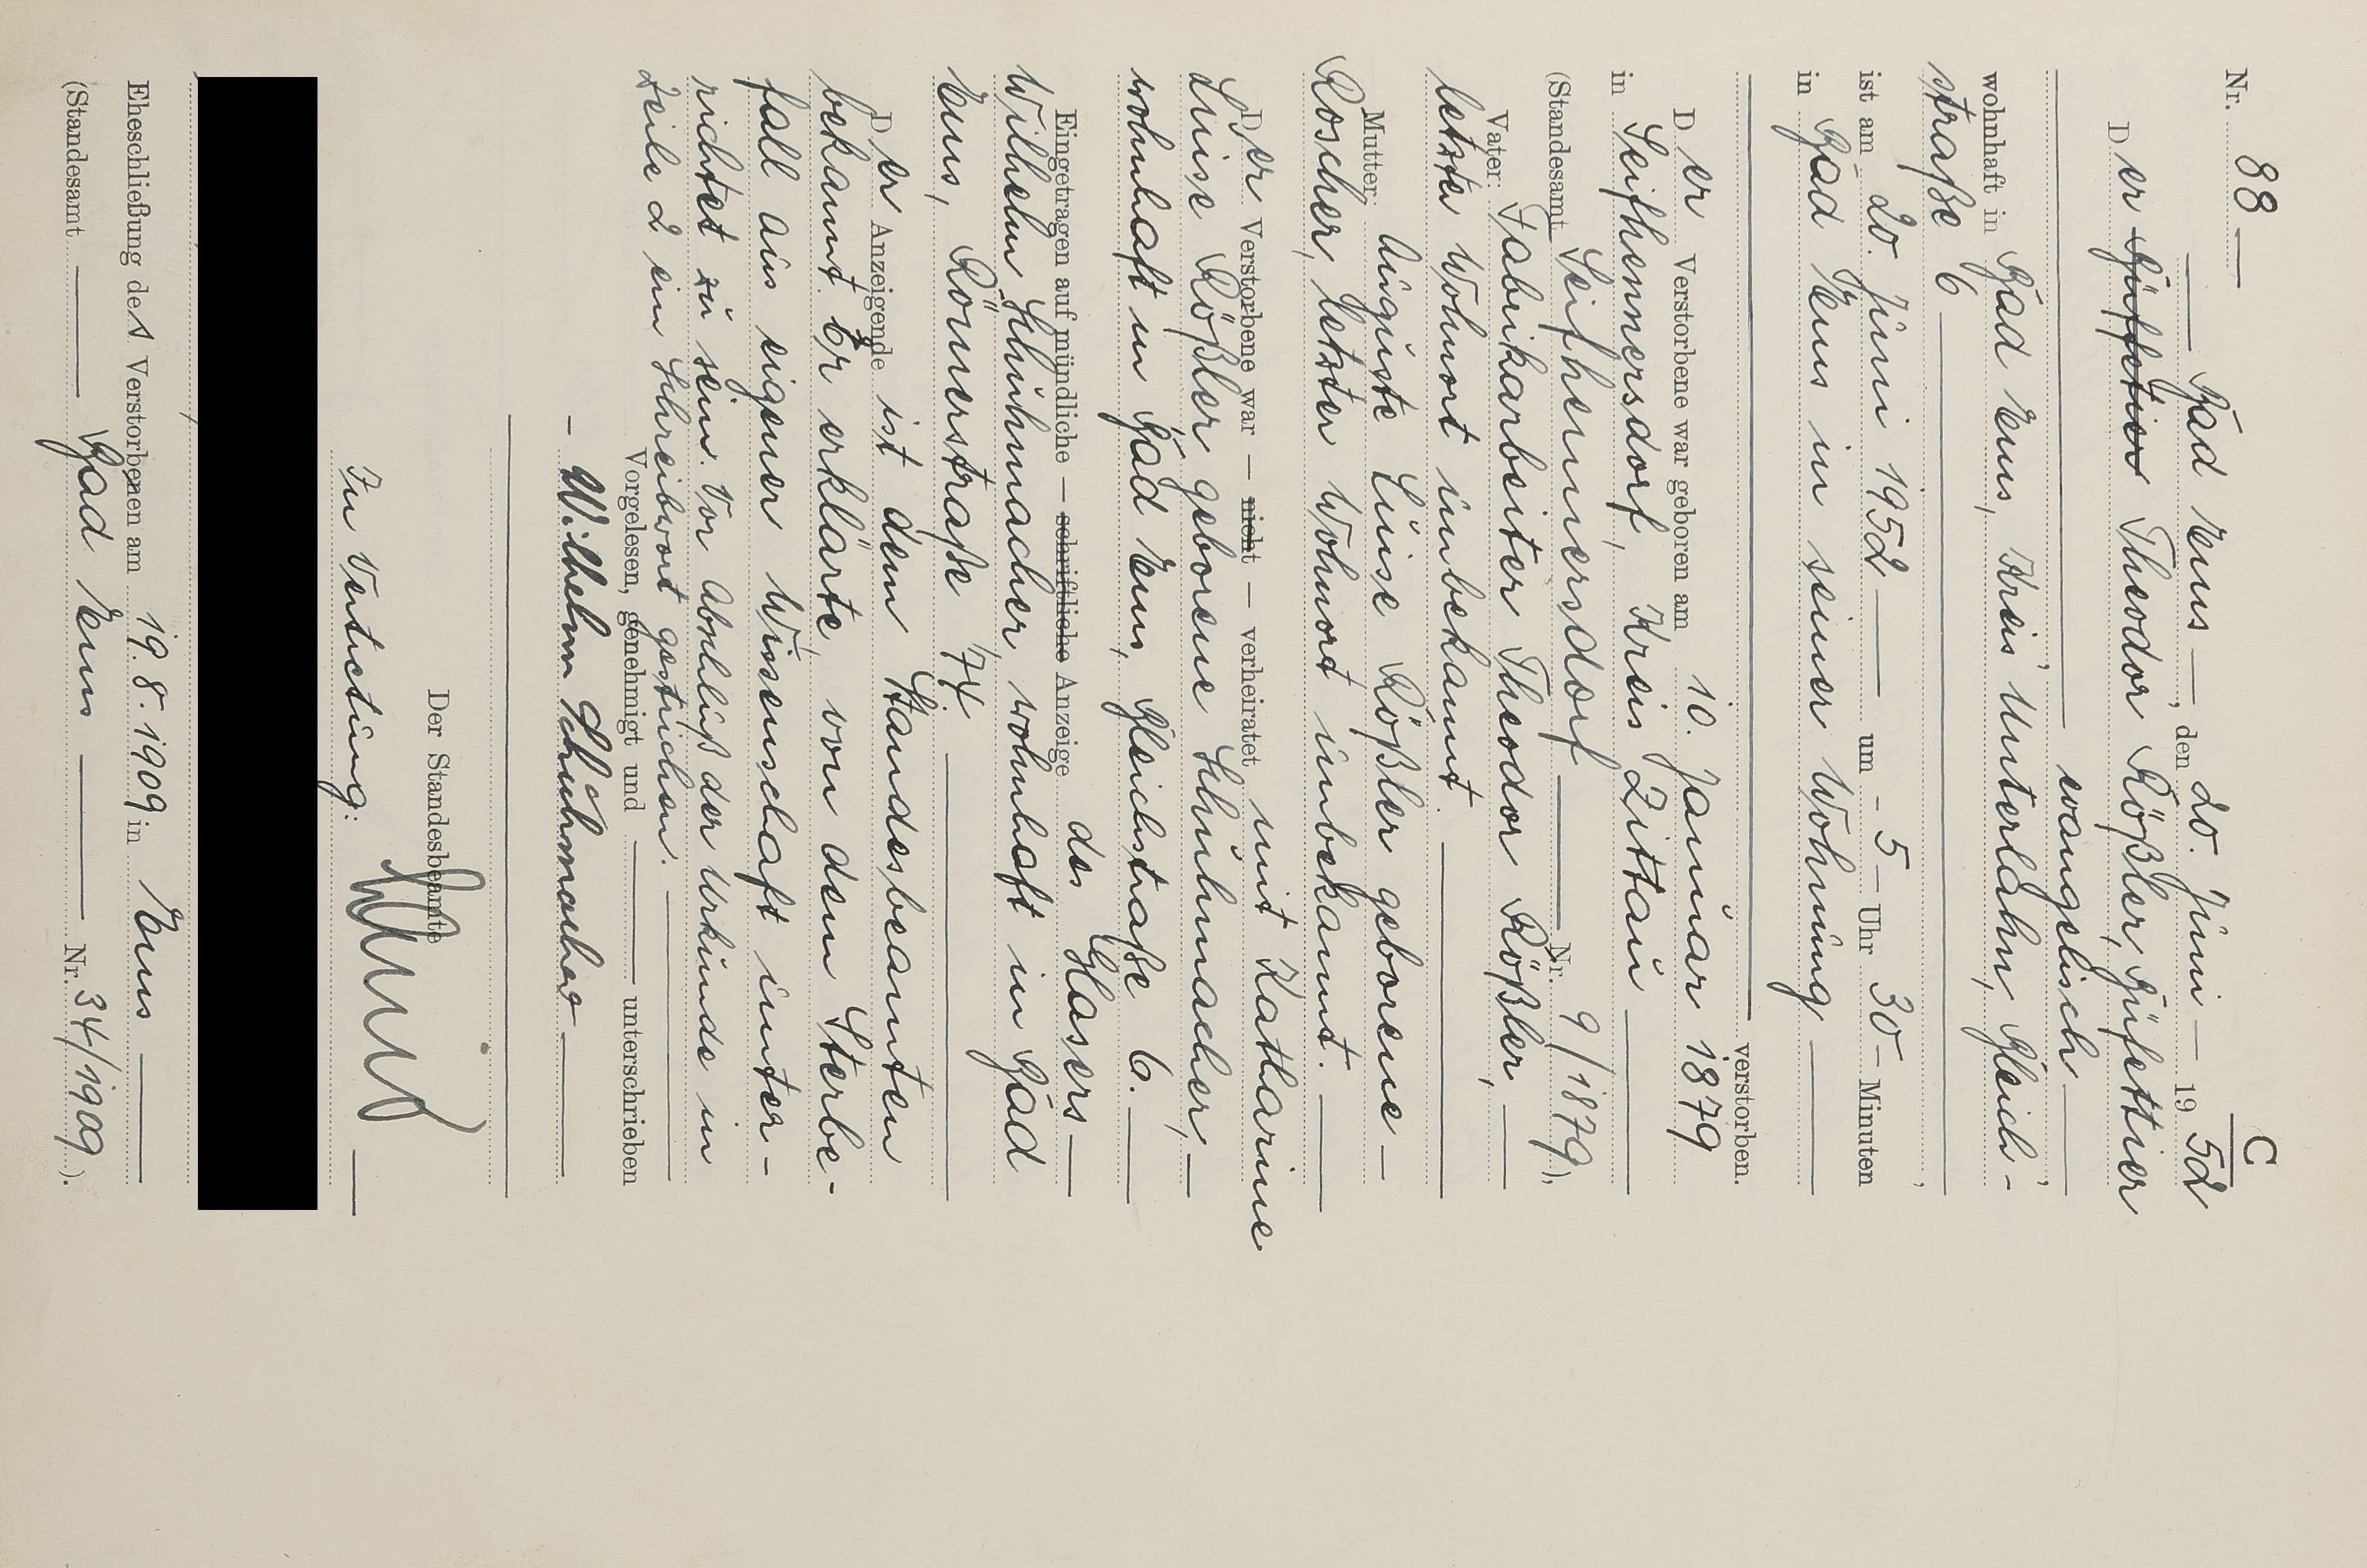 C
Nr. 88
52
Bad Ems, den 20. Juni 19 52
Der Büfettier Theodor Rößler, Büfettier
evangelisch,
wohnhaft in Bad Ems, Kreis Unterlahn, Gleich-
straße 6,
ist am 20. Juni 1952 um - 5 - Uhr 30 - Minuten
in Bad Ems in seiner Wohnung
verstorben.
Der Verstorbene war geboren am 10. Januar 1879
in Seifhennersdorf, Kreis Zittau
(Standesamt Seifhennersdorf Nr. 9/1879),
Vater: Fabrikarbeiter Theodor Rößler,
letzter Wohnort unbekannt.
Mutter: Auguste Luise Rößler geborene
Roscher, letzter Wohnort unbekannt.
Der Verstorbene war — nicht — verheiratet mit Katharine
Luise Rößler geborene Schuhmacher,
wohnhaft in Bad Ems, Gleichstraße 6.
Eingetragen auf mündliche — schriftliche Anzeige des Glasers
Wilhelm Schuhmacher, wohnhaft in Bad
Ems, Römerstraße 74
Der Anzeigende ist dem Standesbeamten
bekannt. Er erklärte, von dem Sterbe-
fall aus eigener Wissenschaft unter-
richtet zu sein. Vor Abschluß der Urkunde in
Zeile 2 ein Schreibwort gestrichen.
Vorgelesen, genehmigt und unterschrieben
- Wilhelm Schuhmacher
Der Standesbeamte
In Vertretung:
Eheschließung des Verstorbenen am 19.8.1909 in Ems
(Standesamt Bad Ems Nr. 34/1909).